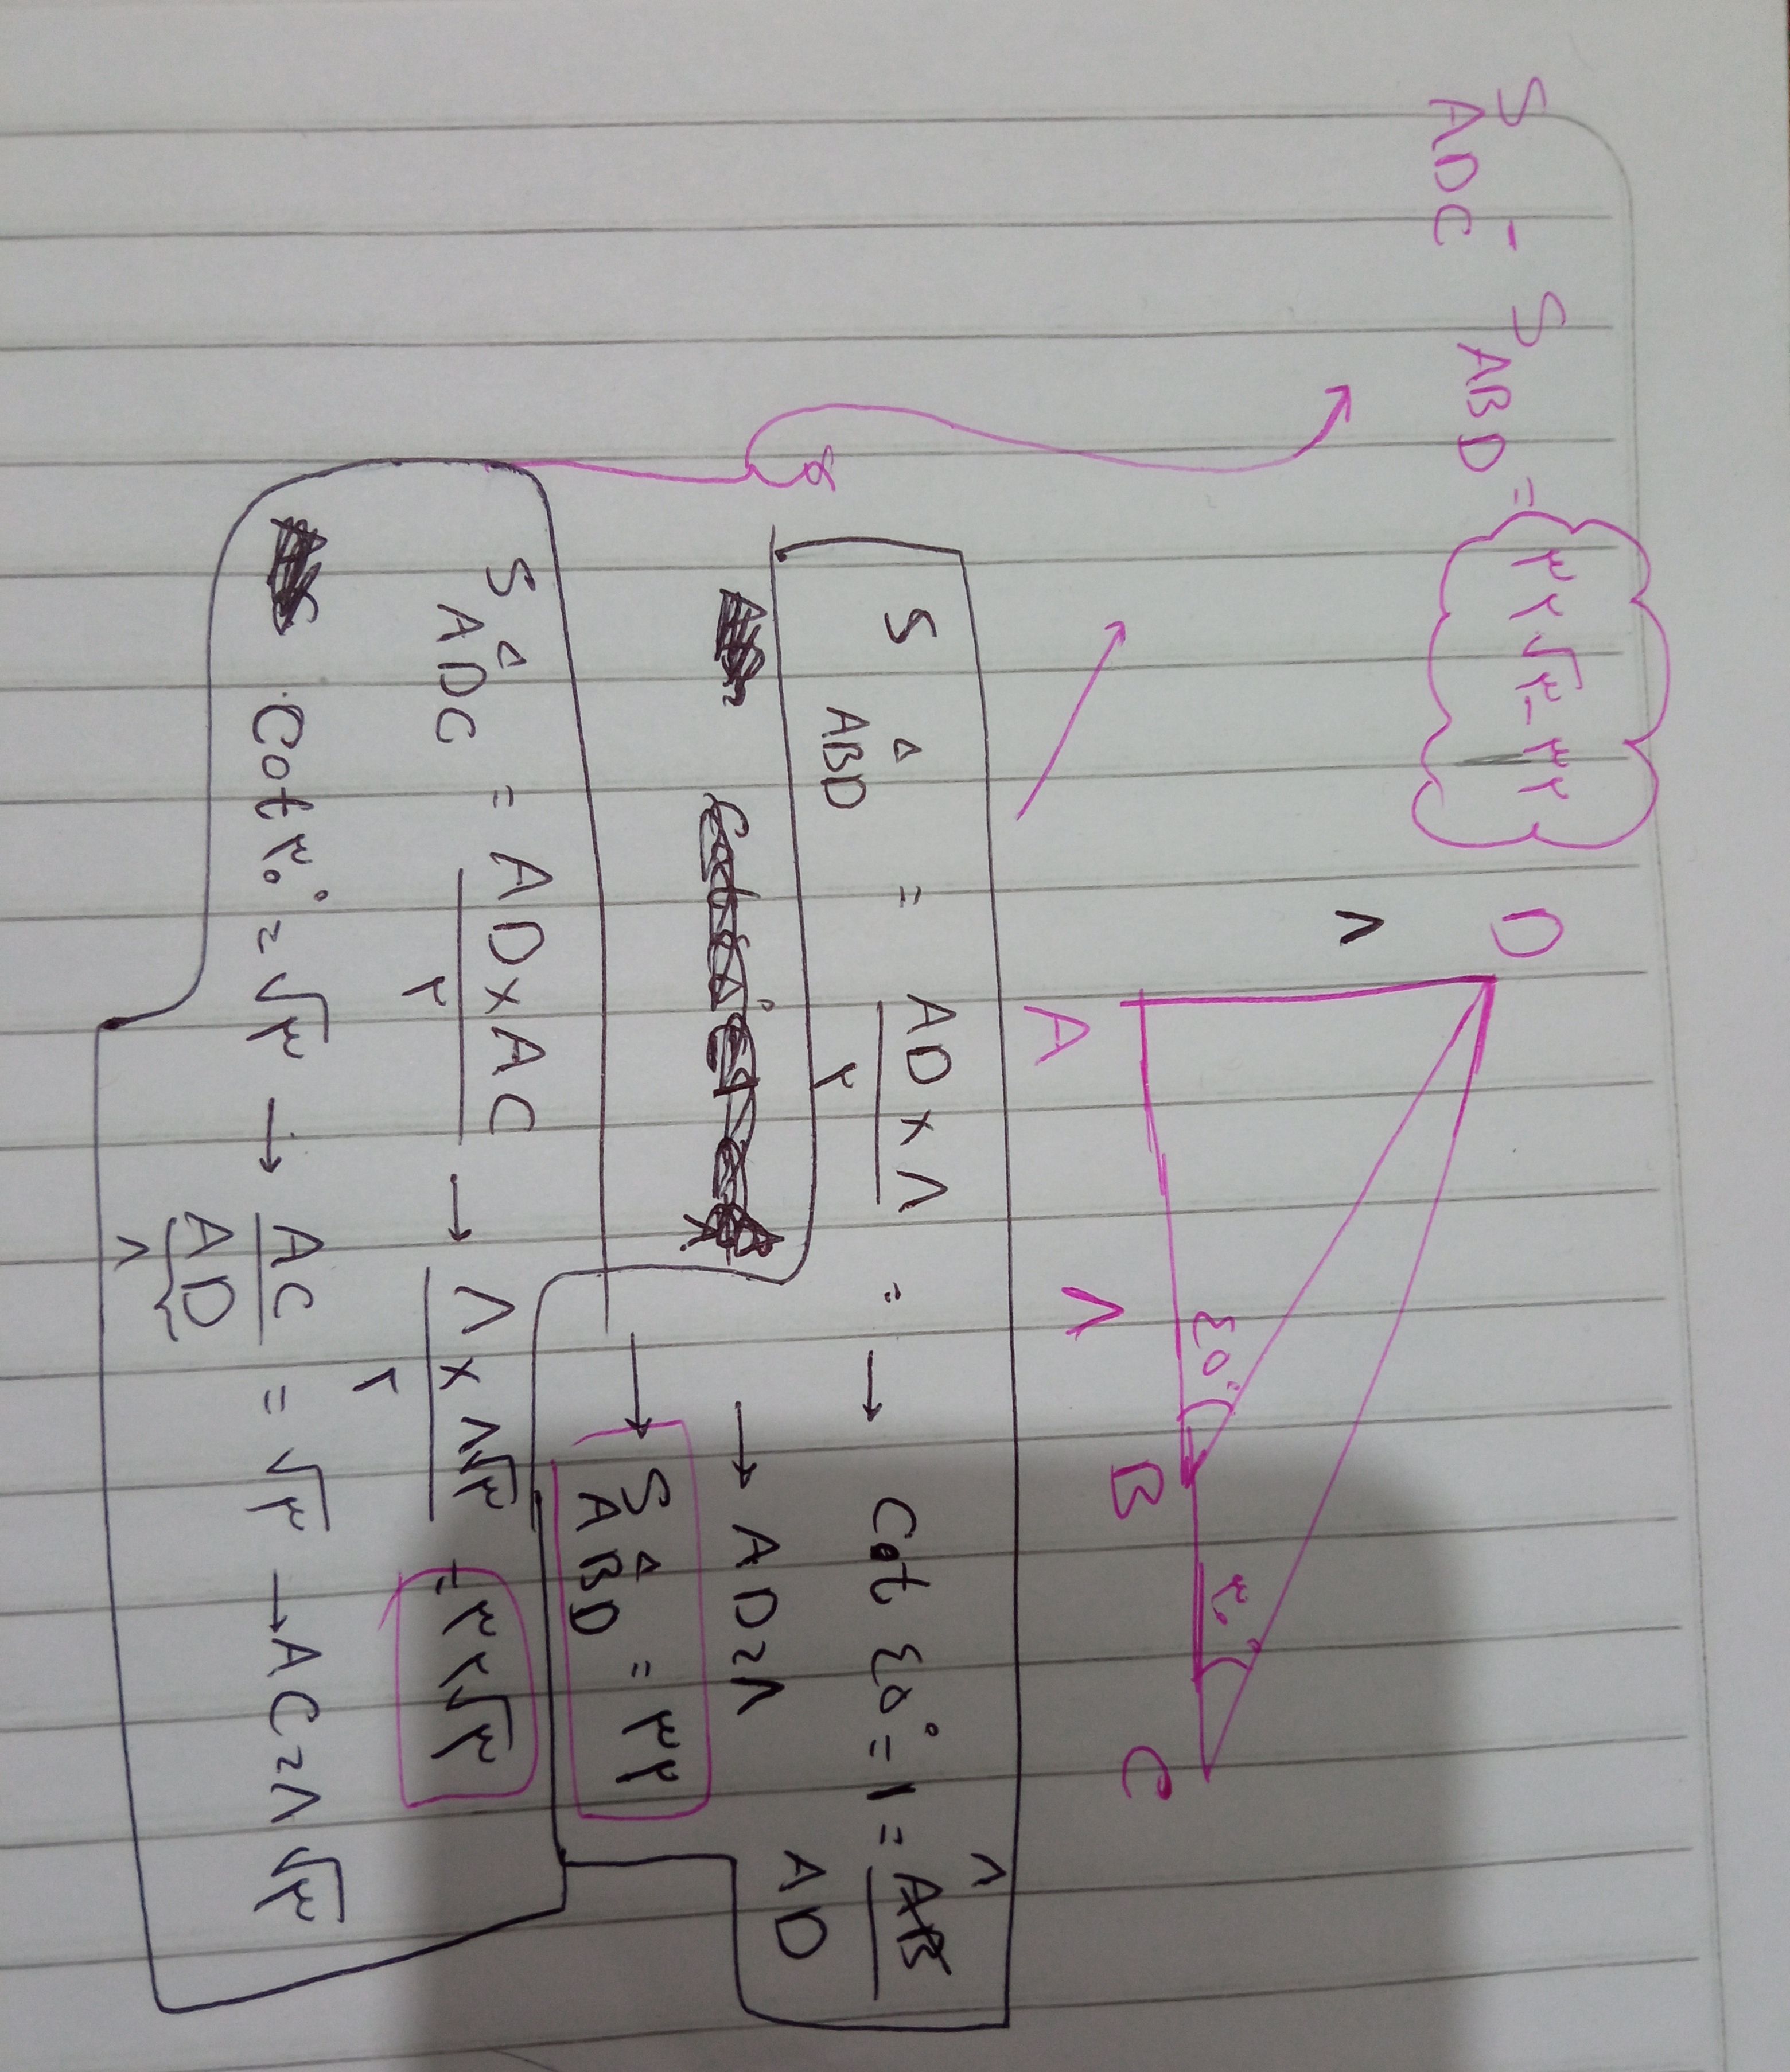 S ADC - S ABD = ۳۲√۳ - ۳۲
D
۸
A
۸
۴۵°
B
۳۰
C
S △ABD = AD×۸ / ۲ = → Cot ۴۵° = ۱ = AB / AD
۸
→ AD = ۸
→ S △ABD = ۳۲
S △ADC = AD×AC / ۲ → ۸×۸√۳ / ۲ = ۳۲√۳
Cot ۳۰° = √۳ → AC / AD = √۳ → AC = ۸√۳
۸